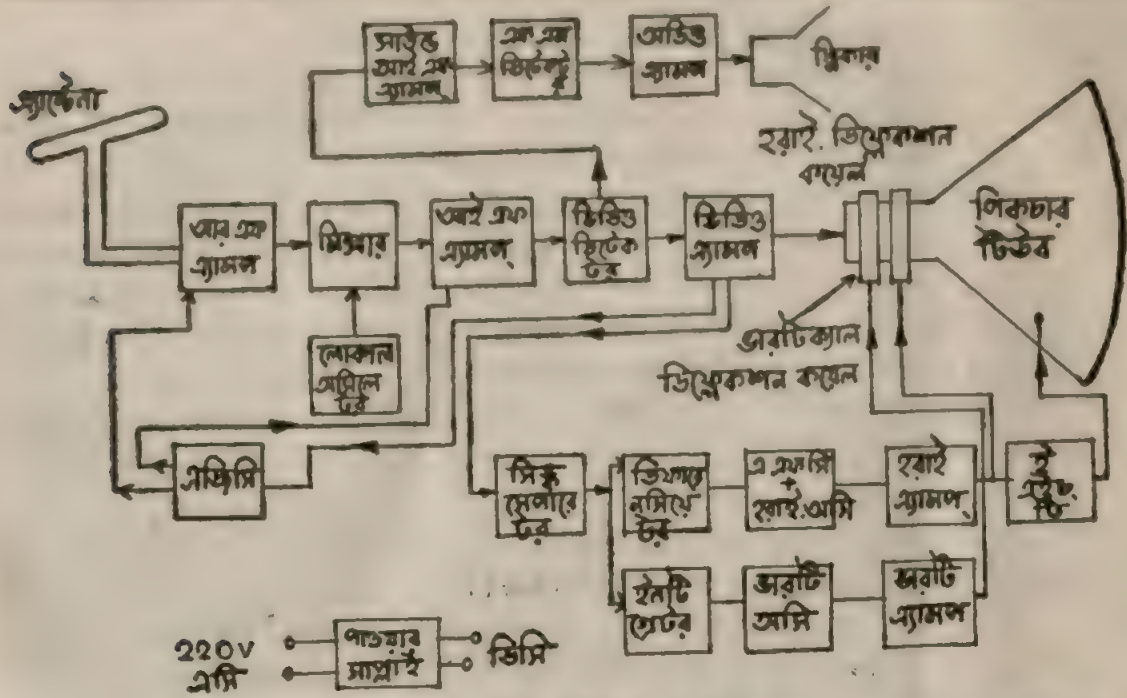 সাউন্ড
আই এফ
এ্যামপ্
এফ এম
ডিটেক্ট
র
অডিও
এ্যামপ
স্পিকার
এ্যান্টেনা
হরাই. ডিফ্লেকশন
কয়েল
আর এফ
এ্যামপ
মিক্সার
আই এফ
এ্যামপ্
ভিডিও
ডিটেক
টর
ভিডিও
এ্যামপ
পিকচার
টিউব
লোকাল
অসিলে
টর
ভারটিক্যাল
ডিফ্লেকশন কয়েল
এজিসি
সিঙ্ক
সেপারে
টর
ডিফারে
নসিয়ে
টর
এ এফ সি
+
হরাই.অসি
হরাই
এ্যামপ্
ই
এইচ.
টি
ইনটি
গ্রেটর
ভারটি
অসি
ভারটি
এ্যামপ
220V
এসি
পাওয়ার
সাপ্লাই
ডিসি